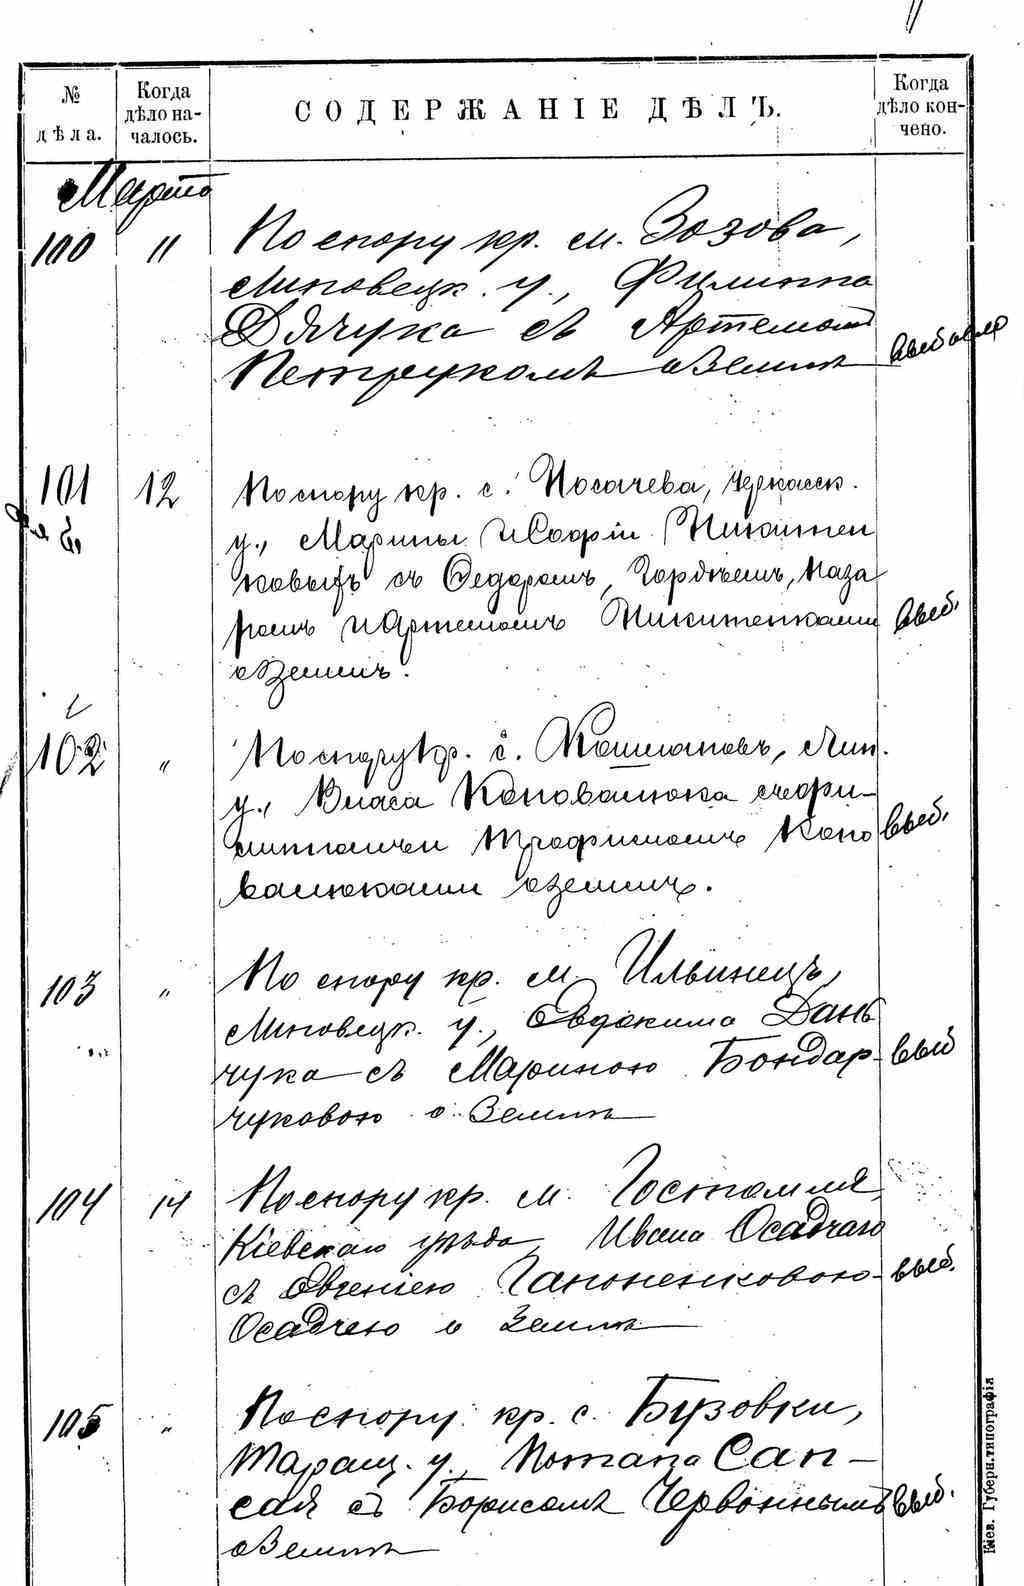 11
№ дѣла.
Когда дѣло началось.
СОДЕРЖАНІЕ ДѢЛЪ.
Когда дѣло кончено.
Мартъ
100 11 По спору кр. м. Зозова,
Липовецк. у., Филиппа
Дячука съ Артемомъ
Петрукомъ о землѣ
101 12 По спору кр. с. Носачева, Черкасск.
у., Марины и Софіи Никитен
ковыхъ съ Федоромъ, Гордѣемъ, Наза
ромъ и Артемомъ Никитенками выб.
о землѣ.
102 " По спору кр. с. Кошлановъ, Лип.
у., Власа Коновалюка съ
Трофимомъ Коно выб.
валюками о землѣ.
103 " По спору кр. м. Ильинецъ,
Липовецк. у., Овдокима Дань
чука съ Мариною Бондар- выб
чуковою о землѣ
104 14 По спору кр. м. Гостомля,
Кіевскаго уѣзда, Ивана Осадчаго
съ Евгеніею Гапоненковою- выб.
Осадчею о землѣ
105 " По спору кр. с. Бузовки,
Таращ. у., Потапа Сап-
сая съ Борисомъ Червоннымъ выб.
о землѣ
Кіев. Губерн. типографія